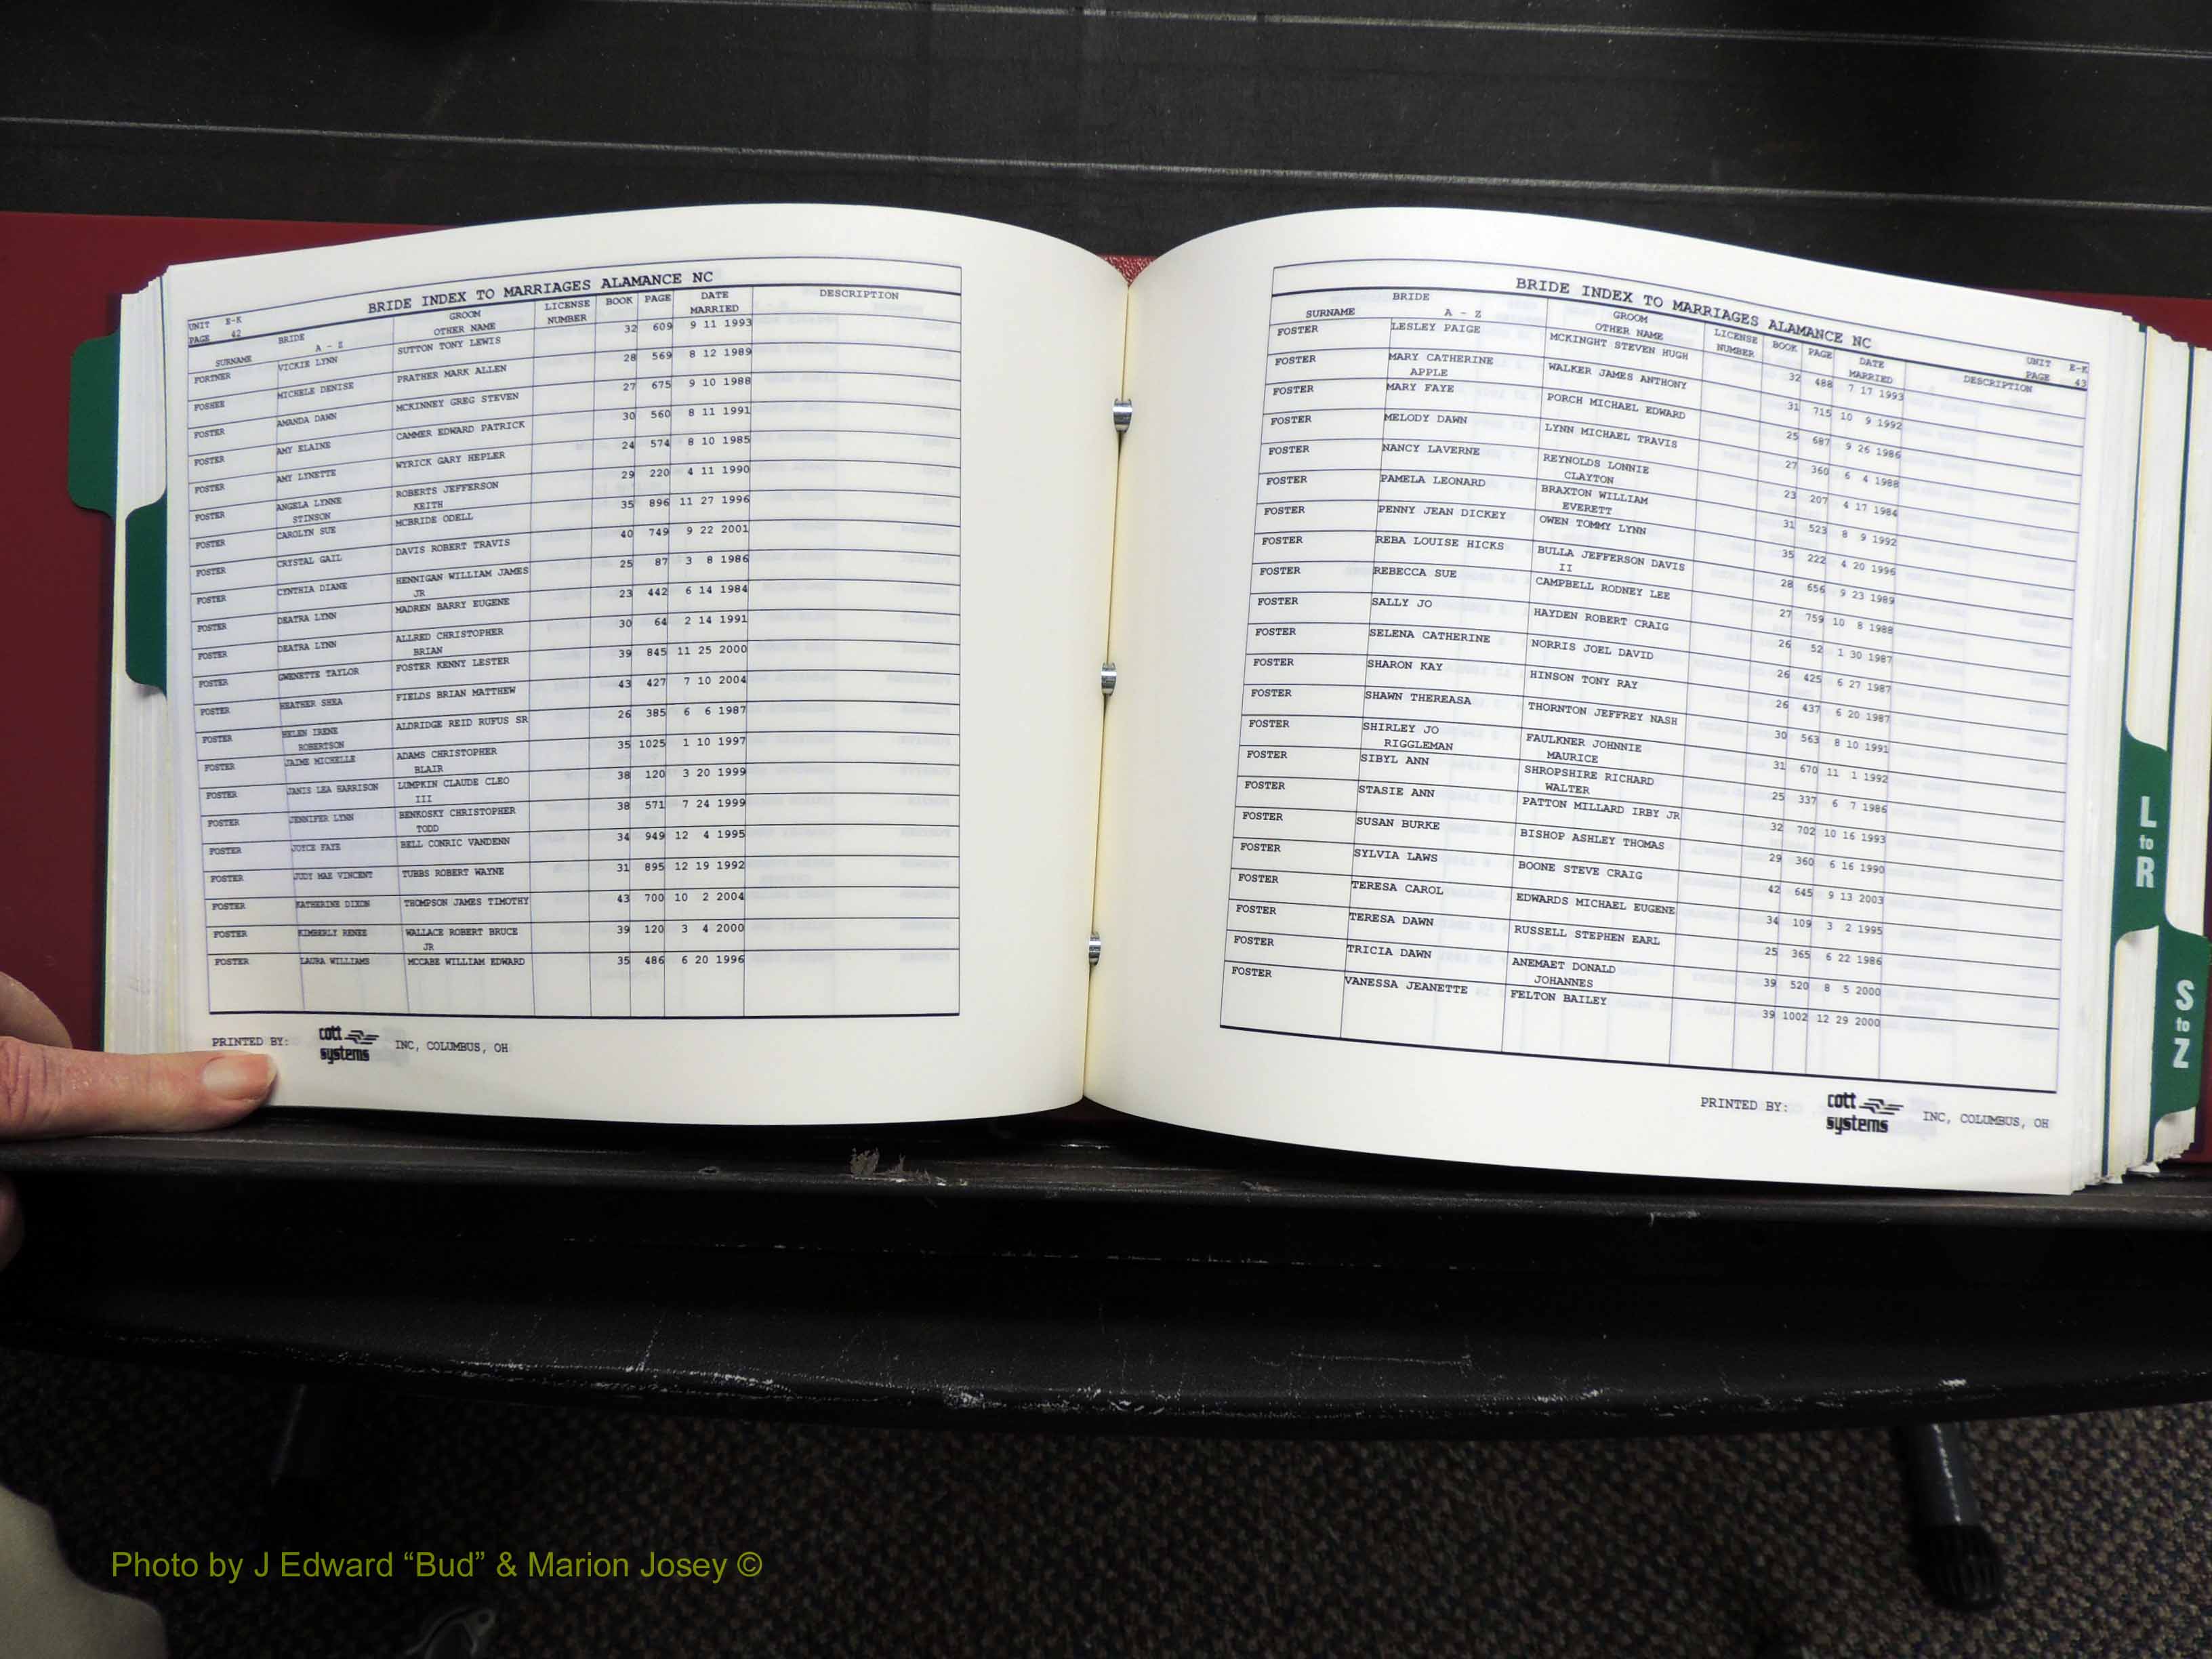 BRIDE INDEX TO MARRIAGES ALAMANCE NC
UNIT E-K
PAGE 42
BRIDE GROOM LICENSE BOOK PAGE DATE DESCRIPTION
SURNAME A - Z OTHER NAME NUMBER MARRIED
FORTNER VICKIE LYNN SUTTON TONY LEWIS 32 609 9 11 1993
FOSHEE MICHELE DENISE PRATHER MARK ALLEN 28 569 8 12 1989
FOSTER AMANDA DAWN MCKINNEY GREG STEVEN 27 675 9 10 1988
FOSTER AMY ELAINE CAMMER EDWARD PATRICK 30 560 8 11 1991
FOSTER AMY LYNETTE WYRICK GARY HEPLER 24 574 8 10 1985
FOSTER ANGELA LYNNE ROBERTS JEFFERSON 29 220 4 11 1990
STINSON KEITH
FOSTER CAROLYN SUE MCBRIDE ODELL 35 896 11 27 1996
FOSTER CRYSTAL GAIL DAVIS ROBERT TRAVIS 40 749 9 22 2001
FOSTER CYNTHIA DIANE HENNIGAN WILLIAM JAMES 25 87 3 8 1986
JR
FOSTER DEATRA LYNN MADREN BARRY EUGENE 23 442 6 14 1984
FOSTER DEATRA LYNN ALLRED CHRISTOPHER 30 64 2 14 1991
BRIAN
FOSTER GWENETTE TAYLOR FOSTER KENNY LESTER 39 845 11 25 2000
FOSTER HEATHER SHEA FIELDS BRIAN MATTHEW 43 427 7 10 2004
FOSTER HELEN IRENE ALDRIDGE REID RUFUS SR 26 385 6 6 1987
ROBERTSON
FOSTER JAIME MICHELLE ADAMS CHRISTOPHER 35 1025 1 10 1997
BLAIR
FOSTER JANIS LEA HARRISON LUMPKIN CLAUDE CLEO 38 120 3 20 1999
III
FOSTER JENNIFER LYNN BENKOSKY CHRISTOPHER 38 571 7 24 1999
TODD
FOSTER JOYCE FAYE BELL CONRIC VANDENN 34 949 12 4 1995
FOSTER JUDY MAE VINCENT TUBBS ROBERT WAYNE 31 895 12 19 1992
FOSTER KATHERINE DIXON THOMPSON JAMES TIMOTHY 43 700 10 2 2004
FOSTER KIMBERLY RENEE WALLACE ROBERT BRUCE 39 120 3 4 2000
JR
FOSTER LAURA WILLIAMS MCCABE WILLIAM EDWARD 35 486 6 20 1996
PRINTED BY: cott systems INC, COLUMBUS, OH
BRIDE INDEX TO MARRIAGES ALAMANCE NC
UNIT E-K
PAGE 43
BRIDE GROOM LICENSE BOOK PAGE DATE DESCRIPTION
SURNAME A - Z OTHER NAME NUMBER MARRIED
FOSTER LESLEY PAIGE MCKINGHT STEVEN HUGH 32 488 7 17 1993
FOSTER MARY CATHERINE WALKER JAMES ANTHONY 31 715 10 9 1992
APPLE
FOSTER MARY FAYE PORCH MICHAEL EDWARD 25 687 9 26 1986
FOSTER MELODY DAWN LYNN MICHAEL TRAVIS 27 360 6 4 1988
FOSTER NANCY LAVERNE REYNOLDS LONNIE 23 207 4 17 1984
CLAYTON
FOSTER PAMELA LEONARD BRAXTON WILLIAM 31 523 8 9 1992
EVERETT
FOSTER PENNY JEAN DICKEY OWEN TOMMY LYNN 35 222 4 20 1996
FOSTER REBA LOUISE HICKS BULLA JEFFERSON DAVIS 28 656 9 23 1989
II
FOSTER REBECCA SUE CAMPBELL RODNEY LEE 27 759 10 8 1988
FOSTER SALLY JO HAYDEN ROBERT CRAIG 26 52 1 30 1987
FOSTER SELENA CATHERINE NORRIS JOEL DAVID 26 425 6 27 1987
FOSTER SHARON KAY HINSON TONY RAY 26 437 6 20 1987
FOSTER SHAWN THEREASA THORNTON JEFFREY NASH 30 563 8 10 1991
FOSTER SHIRLEY JO FAULKNER JOHNNIE 31 670 11 1 1992
RIGGLEMAN MAURICE
FOSTER SIBYL ANN SHROPSHIRE RICHARD 25 337 6 7 1986
WALTER
FOSTER STASIE ANN PATTON MILLARD IRBY JR 32 702 10 16 1993
FOSTER SUSAN BURKE BISHOP ASHLEY THOMAS 29 360 6 16 1990
FOSTER SYLVIA LAWS BOONE STEVE CRAIG 42 645 9 13 2003
FOSTER TERESA CAROL EDWARDS MICHAEL EUGENE 34 109 3 2 1995
FOSTER TERESA DAWN RUSSELL STEPHEN EARL 25 365 6 22 1986
FOSTER TRICIA DAWN ANEMAET DONALD 39 520 8 5 2000
JOHANNES
FOSTER VANESSA JEANETTE FELTON BAILEY 39 1002 12 29 2000
PRINTED BY: cott systems INC, COLUMBUS, OH
L
to
R
S
to
Z
Photo by J Edward “Bud” & Marion Josey ©